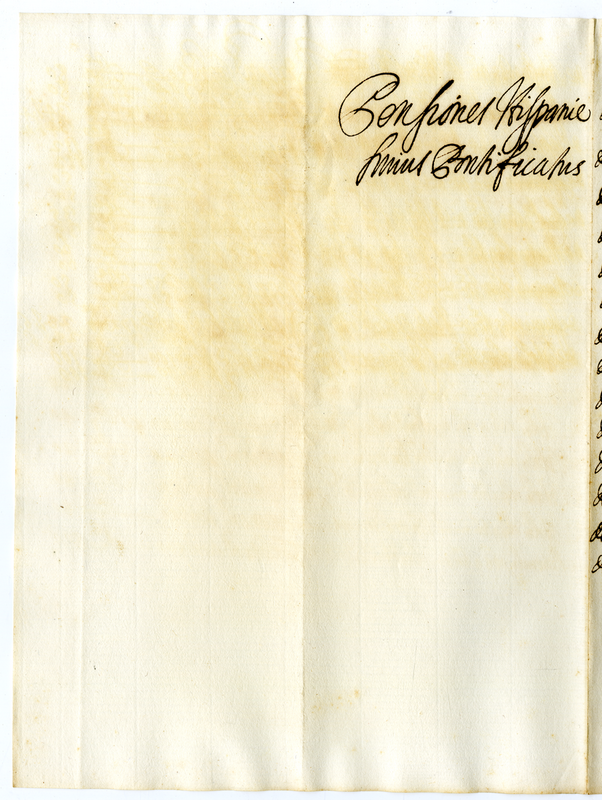 Pensiones Hispanie
huius Pontificatus